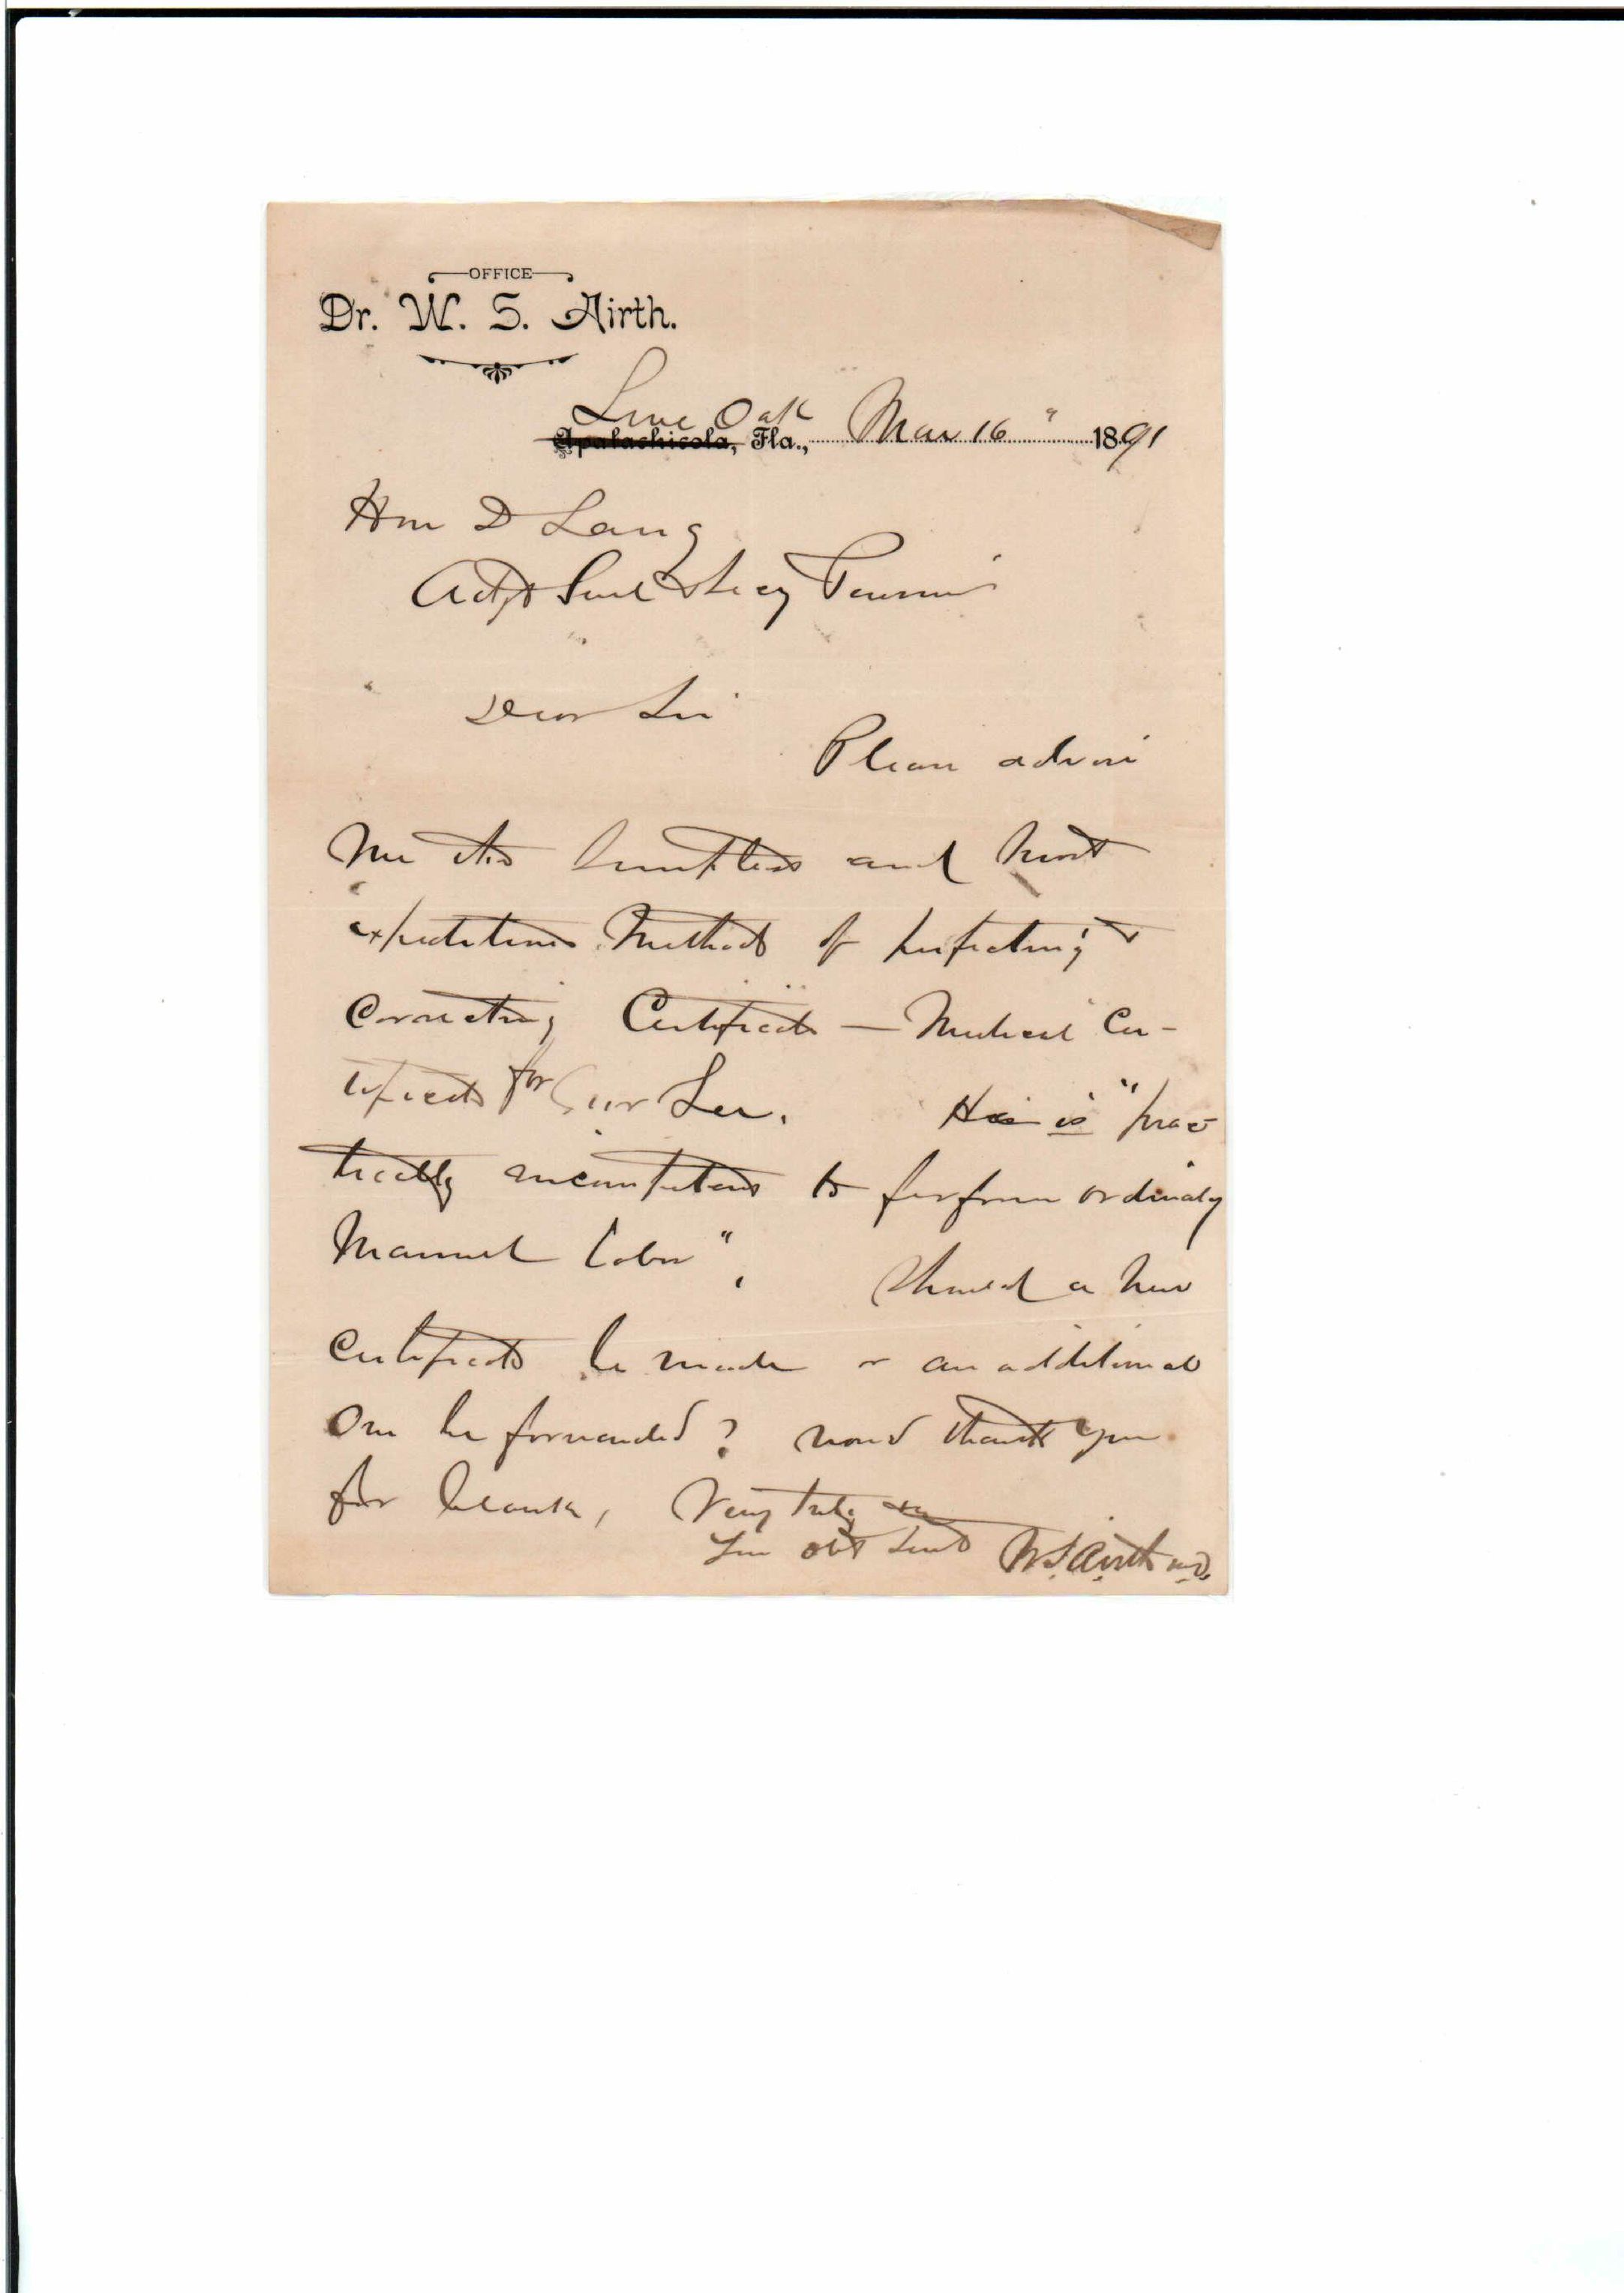 OFFICE
Dr. W. S. Airth.
Live Oak
Apalachicola, Fla., Mar 16" 1891
Hon D Lang
Actg Secy
Dear Sir
Please advise
me the simplest and most
expeditious method of perfecting &
correcting Certificate — Medical Cer-
tificate for Lee.
He is "prac-
tically incompetent to perform ordinary
Manual labor".
Should a new
certificate be made or an additional
one be forwarded? would thank you
for blanks, Very truly
Your obt Servt W.S. Airth M.D.